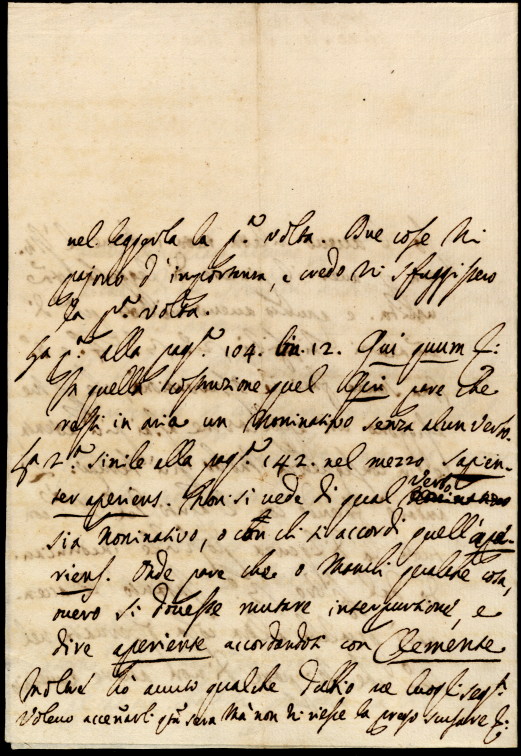 nel leggerla la p.ª volta. Due cose mi
pajono d'importanza, e credo mi sfuggissero
la p.ª volta.
La p.ª alla pag.ª 104. lin. 12. Qui quum &:
In quella costruzione quel Qui pare che
resti in aria un Nominativo senza alcun verbo.
La 2.ª simile alla pag.ª 142. nel mezzo sapien-
ter aperiens. Non si vede di qual Verbo
sia Nominativo, o con chi si accordi quell'ape-
riens. Onde pare che o manchi qualche cosa,
overo si dovesse mutare interpunzione, e
dire aperiente accordandosi con Clemente
Inoltre hò avuto qualche dubio ne luoghi seg.ti
Volevo accennarli q.ta sera ma non mi riesce la prego scusare &: